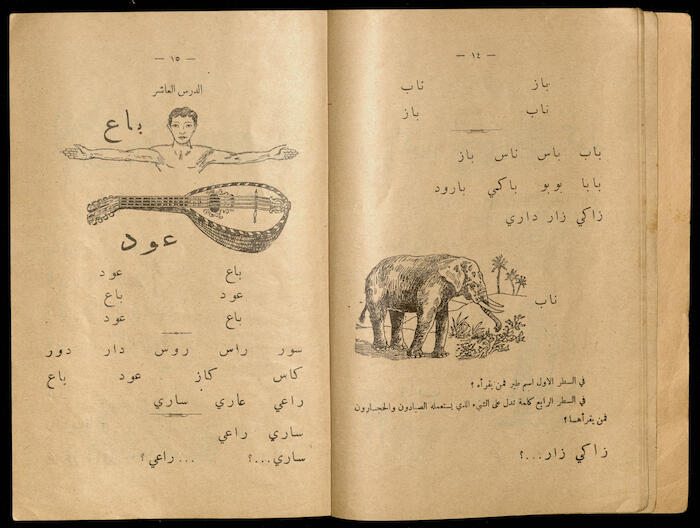 — ١٤ —
باز ناب
ناب باز
باب باس ناس باز
بابا بوبو باكي بارود
زاكي زار داري
ناب
في السطر الاول اسم طير فمن يقرأه ؟
في السطر الرابع كلمة تدل على الشيء الذي يستعمله الصيادون والحجارون
فمن يقرأهما ؟
زاكي زار...؟
— ١٥ —
الدرس العاشر
باع
عود
باع عود
عود باع
باع عود
سور راس روس دار دور
كاس كاز عود باع
راعي عاري ساري
ساري راعي
ساري...؟ ...راعي ؟